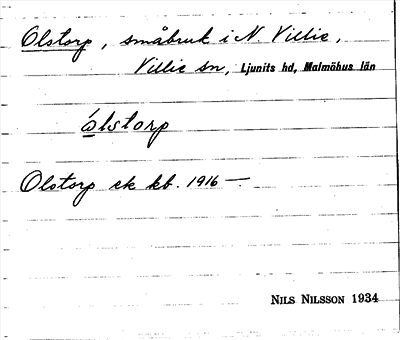 Olstorp, småbruk i N. Villie,
Villie sn, Ljunits hd, Malmöhus län
ólstorp
Olstorp ek kb. 1916 —
NILS NILSSON 1934